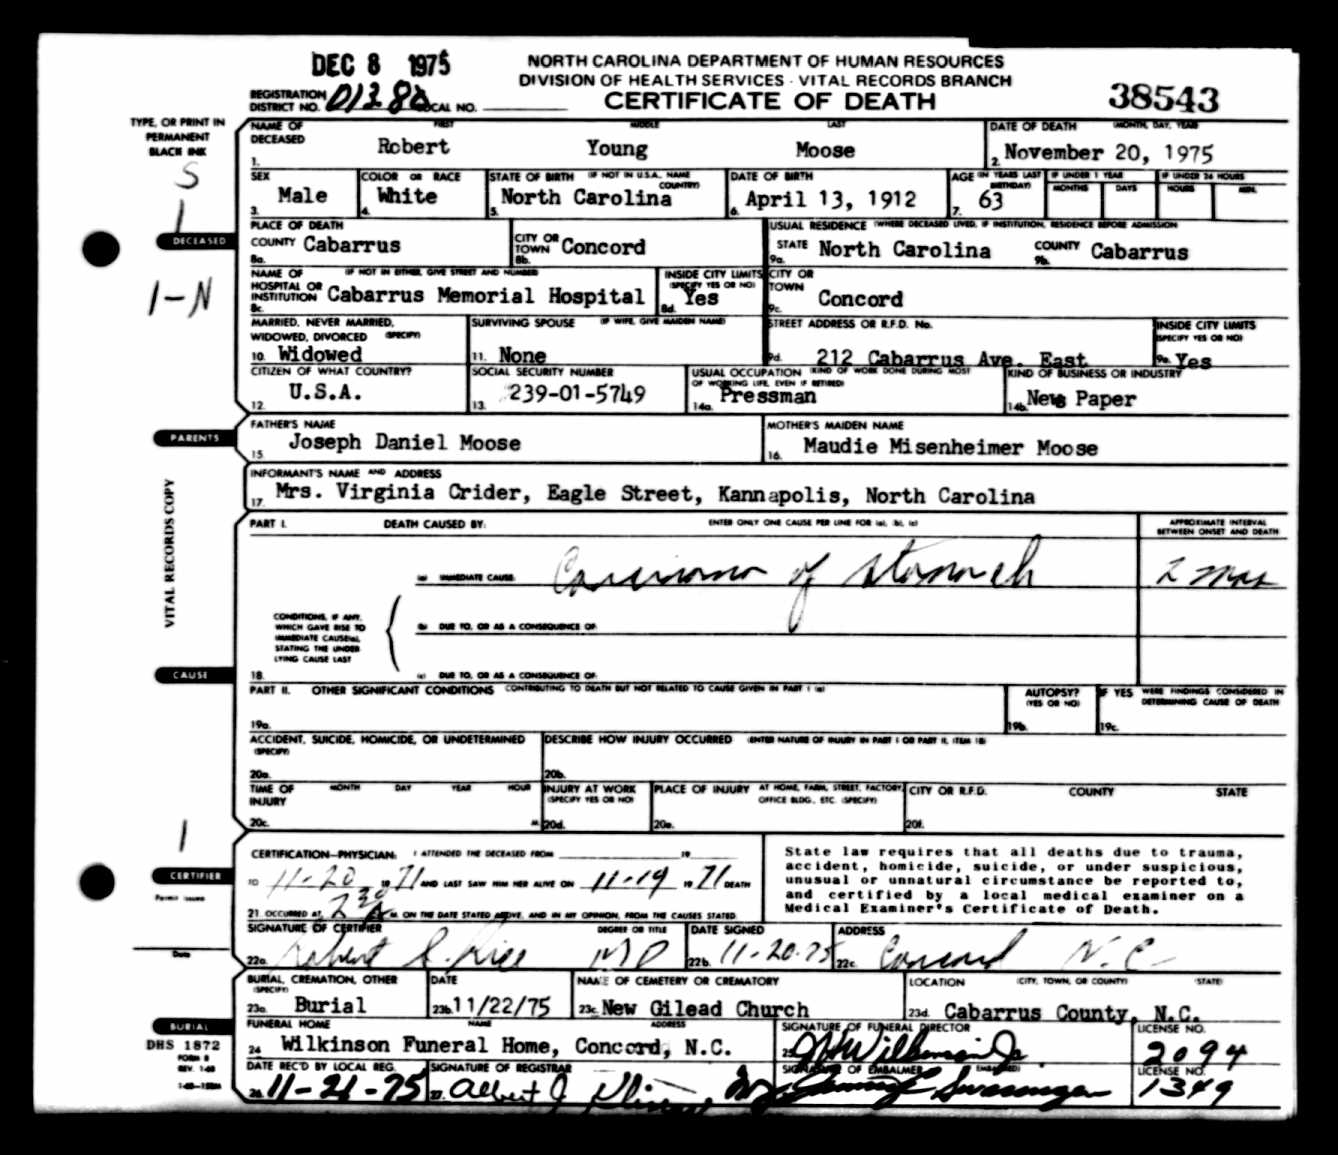 DEC 8 1975
NORTH CAROLINA DEPARTMENT OF HUMAN RESOURCES
DIVISION OF HEALTH SERVICES - VITAL RECORDS BRANCH
CERTIFICATE OF DEATH
38543
REGISTRATION DISTRICT NO. LOCAL NO.
TYPE, OR PRINT IN PERMANENT BLACK INK
S
1
1-N
NAME OF DECEASED FIRST MIDDLE LAST
1. Robert Young Moose
DATE OF DEATH (MONTH, DAY, YEAR)
2. November 20, 1975
SEX
3. Male
COLOR OR RACE
4. White
STATE OF BIRTH (IF NOT IN U.S.A., NAME COUNTRY)
5. North Carolina
DATE OF BIRTH
6. April 13, 1912
AGE (IN YEARS LAST BIRTHDAY)
7. 63
IF UNDER 1 YEAR
MONTHS DAYS
IF UNDER 24 HOURS
HOURS MIN.
DECEASED
PLACE OF DEATH
COUNTY Cabarrus
8a.
CITY OR TOWN Concord
8b.
USUAL RESIDENCE (WHERE DECEASED LIVED, IF INSTITUTION, RESIDENCE BEFORE ADMISSION
STATE North Carolina
9a.
COUNTY Cabarrus
9b.
NAME OF HOSPITAL OR INSTITUTION (IF NOT IN EITHER, GIVE STREET AND NUMBER)
8c. Cabarrus Memorial Hospital
INSIDE CITY LIMITS (SPECIFY YES OR NO)
8d. Yes
CITY OR TOWN
9c. Concord
MARRIED, NEVER MARRIED, WIDOWED, DIVORCED (SPECIFY)
10. Widowed
SURVIVING SPOUSE (IF WIFE, GIVE MAIDEN NAME)
11. None
STREET ADDRESS OR R.F.D. No.
9d. 212 Cabarrus Ave. East
INSIDE CITY LIMITS (SPECIFY YES OR NO)
9e. Yes
CITIZEN OF WHAT COUNTRY?
12. U.S.A.
SOCIAL SECURITY NUMBER
13. 239-01-5749
USUAL OCCUPATION (KIND OF WORK DONE DURING MOST OF WORKING LIFE, EVEN IF RETIRED)
14a. Pressman
KIND OF BUSINESS OR INDUSTRY
14b. News Paper
PARENTS
FATHER'S NAME
15. Joseph Daniel Moose
MOTHER'S MAIDEN NAME
16. Maudie Misenheimer Moose
INFORMANT'S NAME AND ADDRESS
17. Mrs. Virginia Crider, Eagle Street, Kannapolis, North Carolina
VITAL RECORDS COPY
PART I. DEATH CAUSED BY: ENTER ONLY ONE CAUSE PER LINE FOR (a), (b), (c)
APPROXIMATE INTERVAL BETWEEN ONSET AND DEATH
(a) IMMEDIATE CAUSE: Carcinoma of stomach 2 mos
CONDITIONS, IF ANY, WHICH GAVE RISE TO IMMEDIATE CAUSE(a), STATING THE UNDERLYING CAUSE LAST
(b) DUE TO, OR AS A CONSEQUENCE OF:
18. (c) DUE TO, OR AS A CONSEQUENCE OF:
CAUSE
PART II. OTHER SIGNIFICANT CONDITIONS CONTRIBUTING TO DEATH BUT NOT RELATED TO CAUSE GIVEN IN PART I (a)
19a.
AUTOPSY? (YES OR NO)
19b.
IF YES WERE FINDINGS CONSIDERED IN DETERMINING CAUSE OF DEATH
19c.
ACCIDENT, SUICIDE, HOMICIDE, OR UNDETERMINED (SPECIFY)
20a.
DESCRIBE HOW INJURY OCCURRED (ENTER NATURE OF INJURY IN PART I OR PART II, ITEM 18)
20b.
TIME OF INJURY MONTH DAY YEAR HOUR
20c. M.
INJURY AT WORK (SPECIFY YES OR NO)
20d.
PLACE OF INJURY AT HOME, FARM, STREET, FACTORY, OFFICE BLDG., ETC. (SPECIFY)
20e.
CITY OR R.F.D. COUNTY STATE
20f.
1
CERTIFIER
CERTIFICATION—PHYSICIAN: I ATTENDED THE DECEASED FROM 19
TO 11-20 19 71 AND LAST SAW HIM HER ALIVE ON 11-19 19 71 DEATH
21. OCCURRED AT M. ON THE DATE STATED ABOVE, AND IN MY OPINION, FROM THE CAUSES STATED.
State law requires that all deaths due to trauma,
accident, homicide, suicide, or under suspicious,
unusual or unnatural circumstance be reported to,
and certified by a local medical examiner on a
Medical Examiner's Certificate of Death.
Permit Issued
Date
SIGNATURE OF CERTIFIER DEGREE OR TITLE
22a. Robert MD
DATE SIGNED
22b. 11-20-75
ADDRESS
22c. Concord N.C.
BURIAL, CREMATION, OTHER (SPECIFY)
23a. Burial
DATE
23b. 11/22/75
NAME OF CEMETERY OR CREMATORY
23c. New Gilead Church
LOCATION (CITY, TOWN, OR COUNTY) (STATE)
23d. Cabarrus County, N.C.
BURIAL
DHS 1872
FORM 8
REV. 1-68
FUNERAL HOME NAME ADDRESS
24 Wilkinson Funeral Home, Concord, N.C.
SIGNATURE OF FUNERAL DIRECTOR
25. Wilkinson Jr
LICENSE NO.
2094
DATE REC'D BY LOCAL REG.
26. 11-21-75
SIGNATURE OF REGISTRAR
27. Albert J.
SIGNATURE OF EMBALMER (IF EMBALMED)
LICENSE NO.
1349